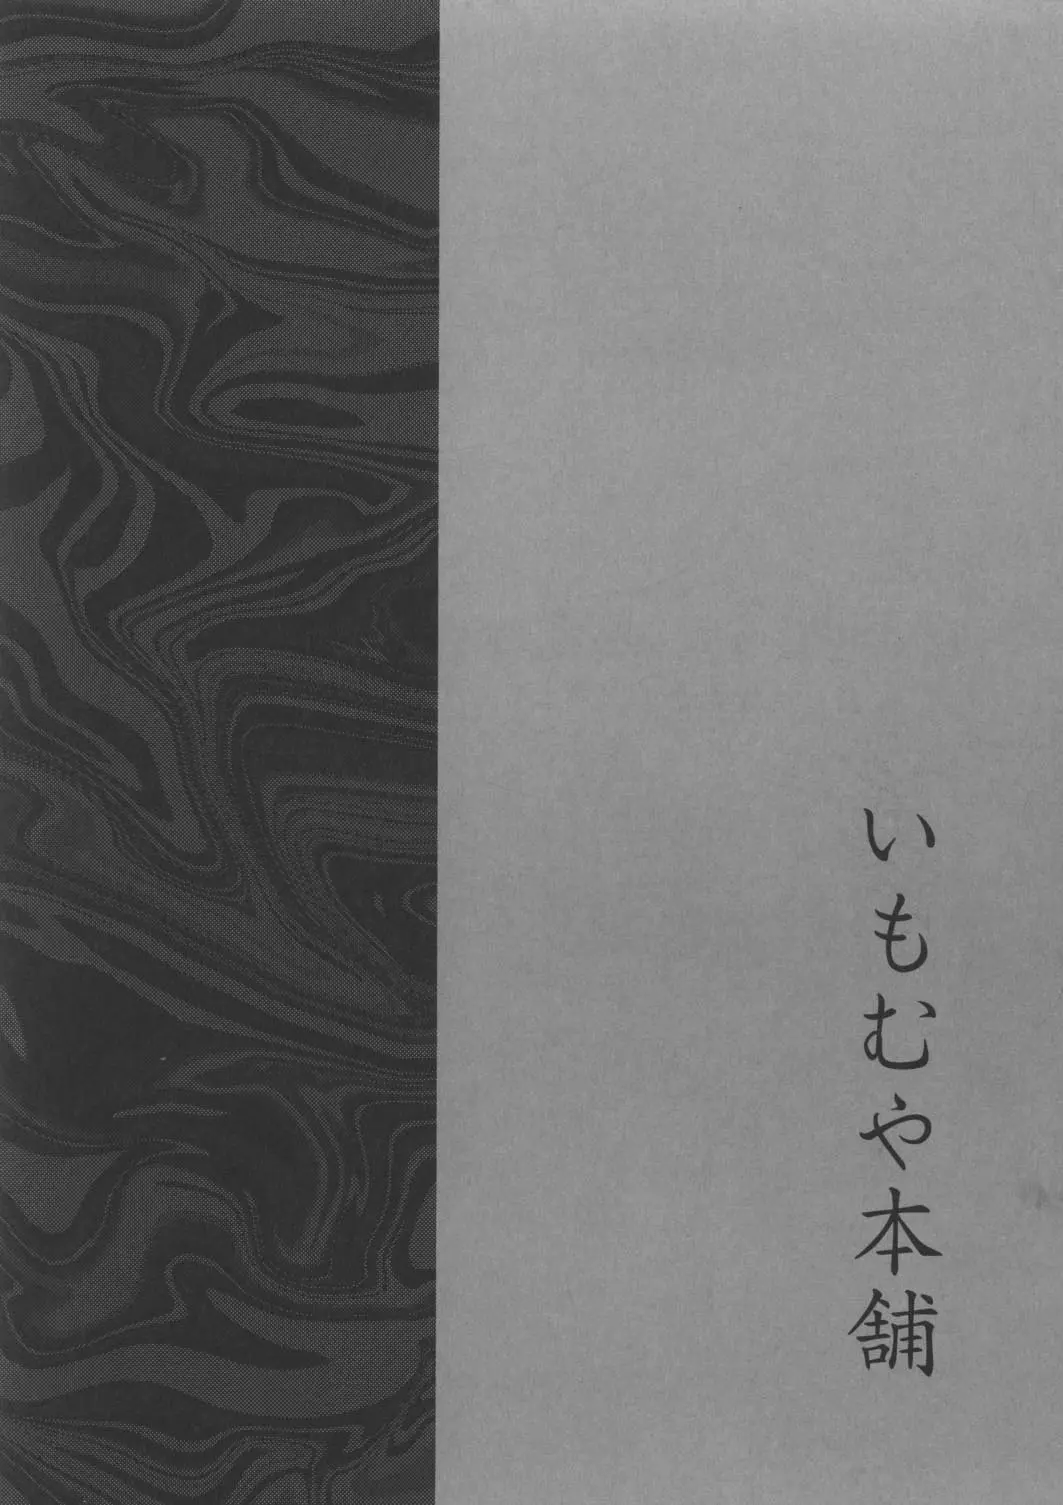 いもむや本舗